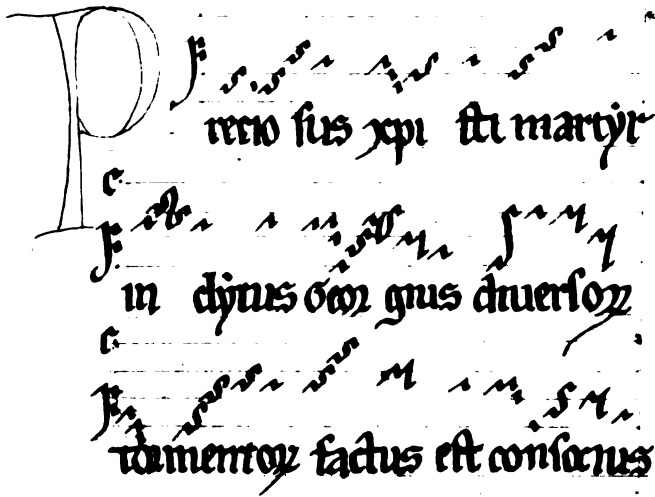 Precio sus xpi sti martẏr
in clẏtus Geor gius diuersoꝝ
tormentoꝝ factus est consocius